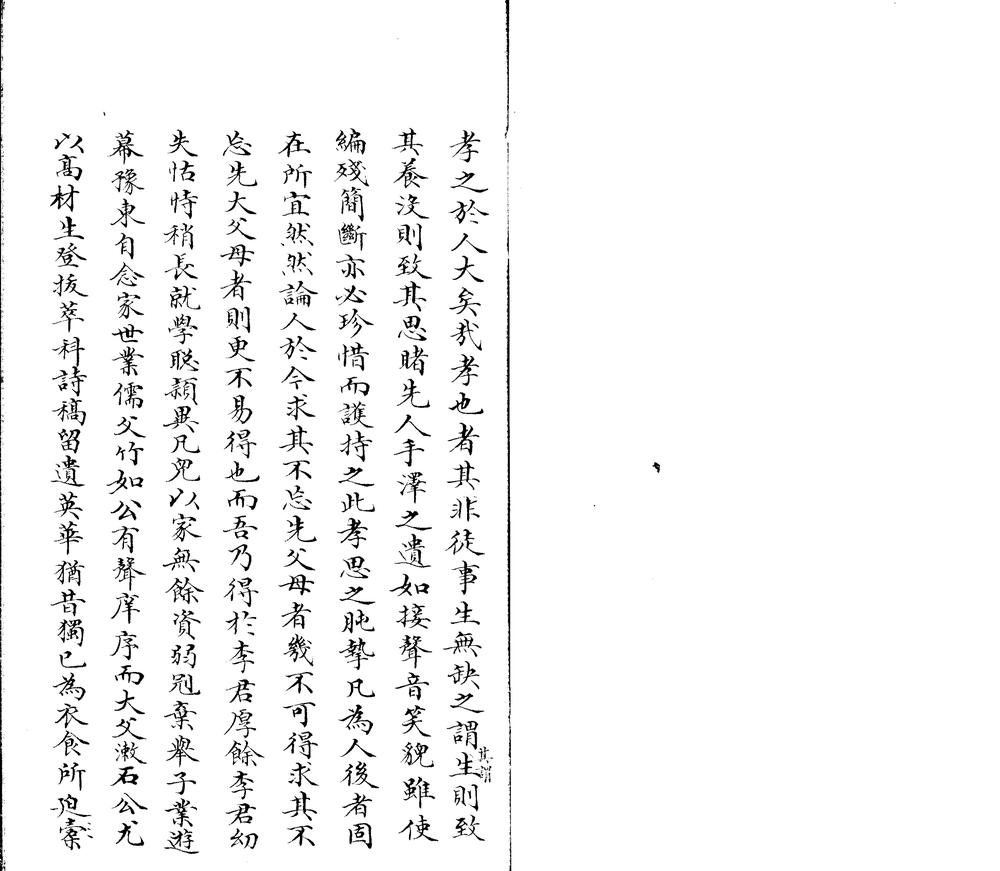 孝之於人大矣哉孝也者其非徒事生無缺之謂其謂生則致
其養沒則致其思睹先人手澤之遺如接聲音笑貌雖使
編殘簡斷亦必珍惜而護持之此孝思之肫摯凡為人後者固
在所宜然然論人於今求其不忘先父母者幾不可得求其不
忘先大父母者則更不易得也而吾乃得於李君厚餘李君幼
失怙恃稍長就學聰頴異凡兒以家無餘資弱冠棄舉子業遊
幕豫東自念家世業儒父竹如公有聲庠序而大父漱石公尤
以高材生登拔萃科詩稿留遺英華猶昔獨已為衣食所迫橐